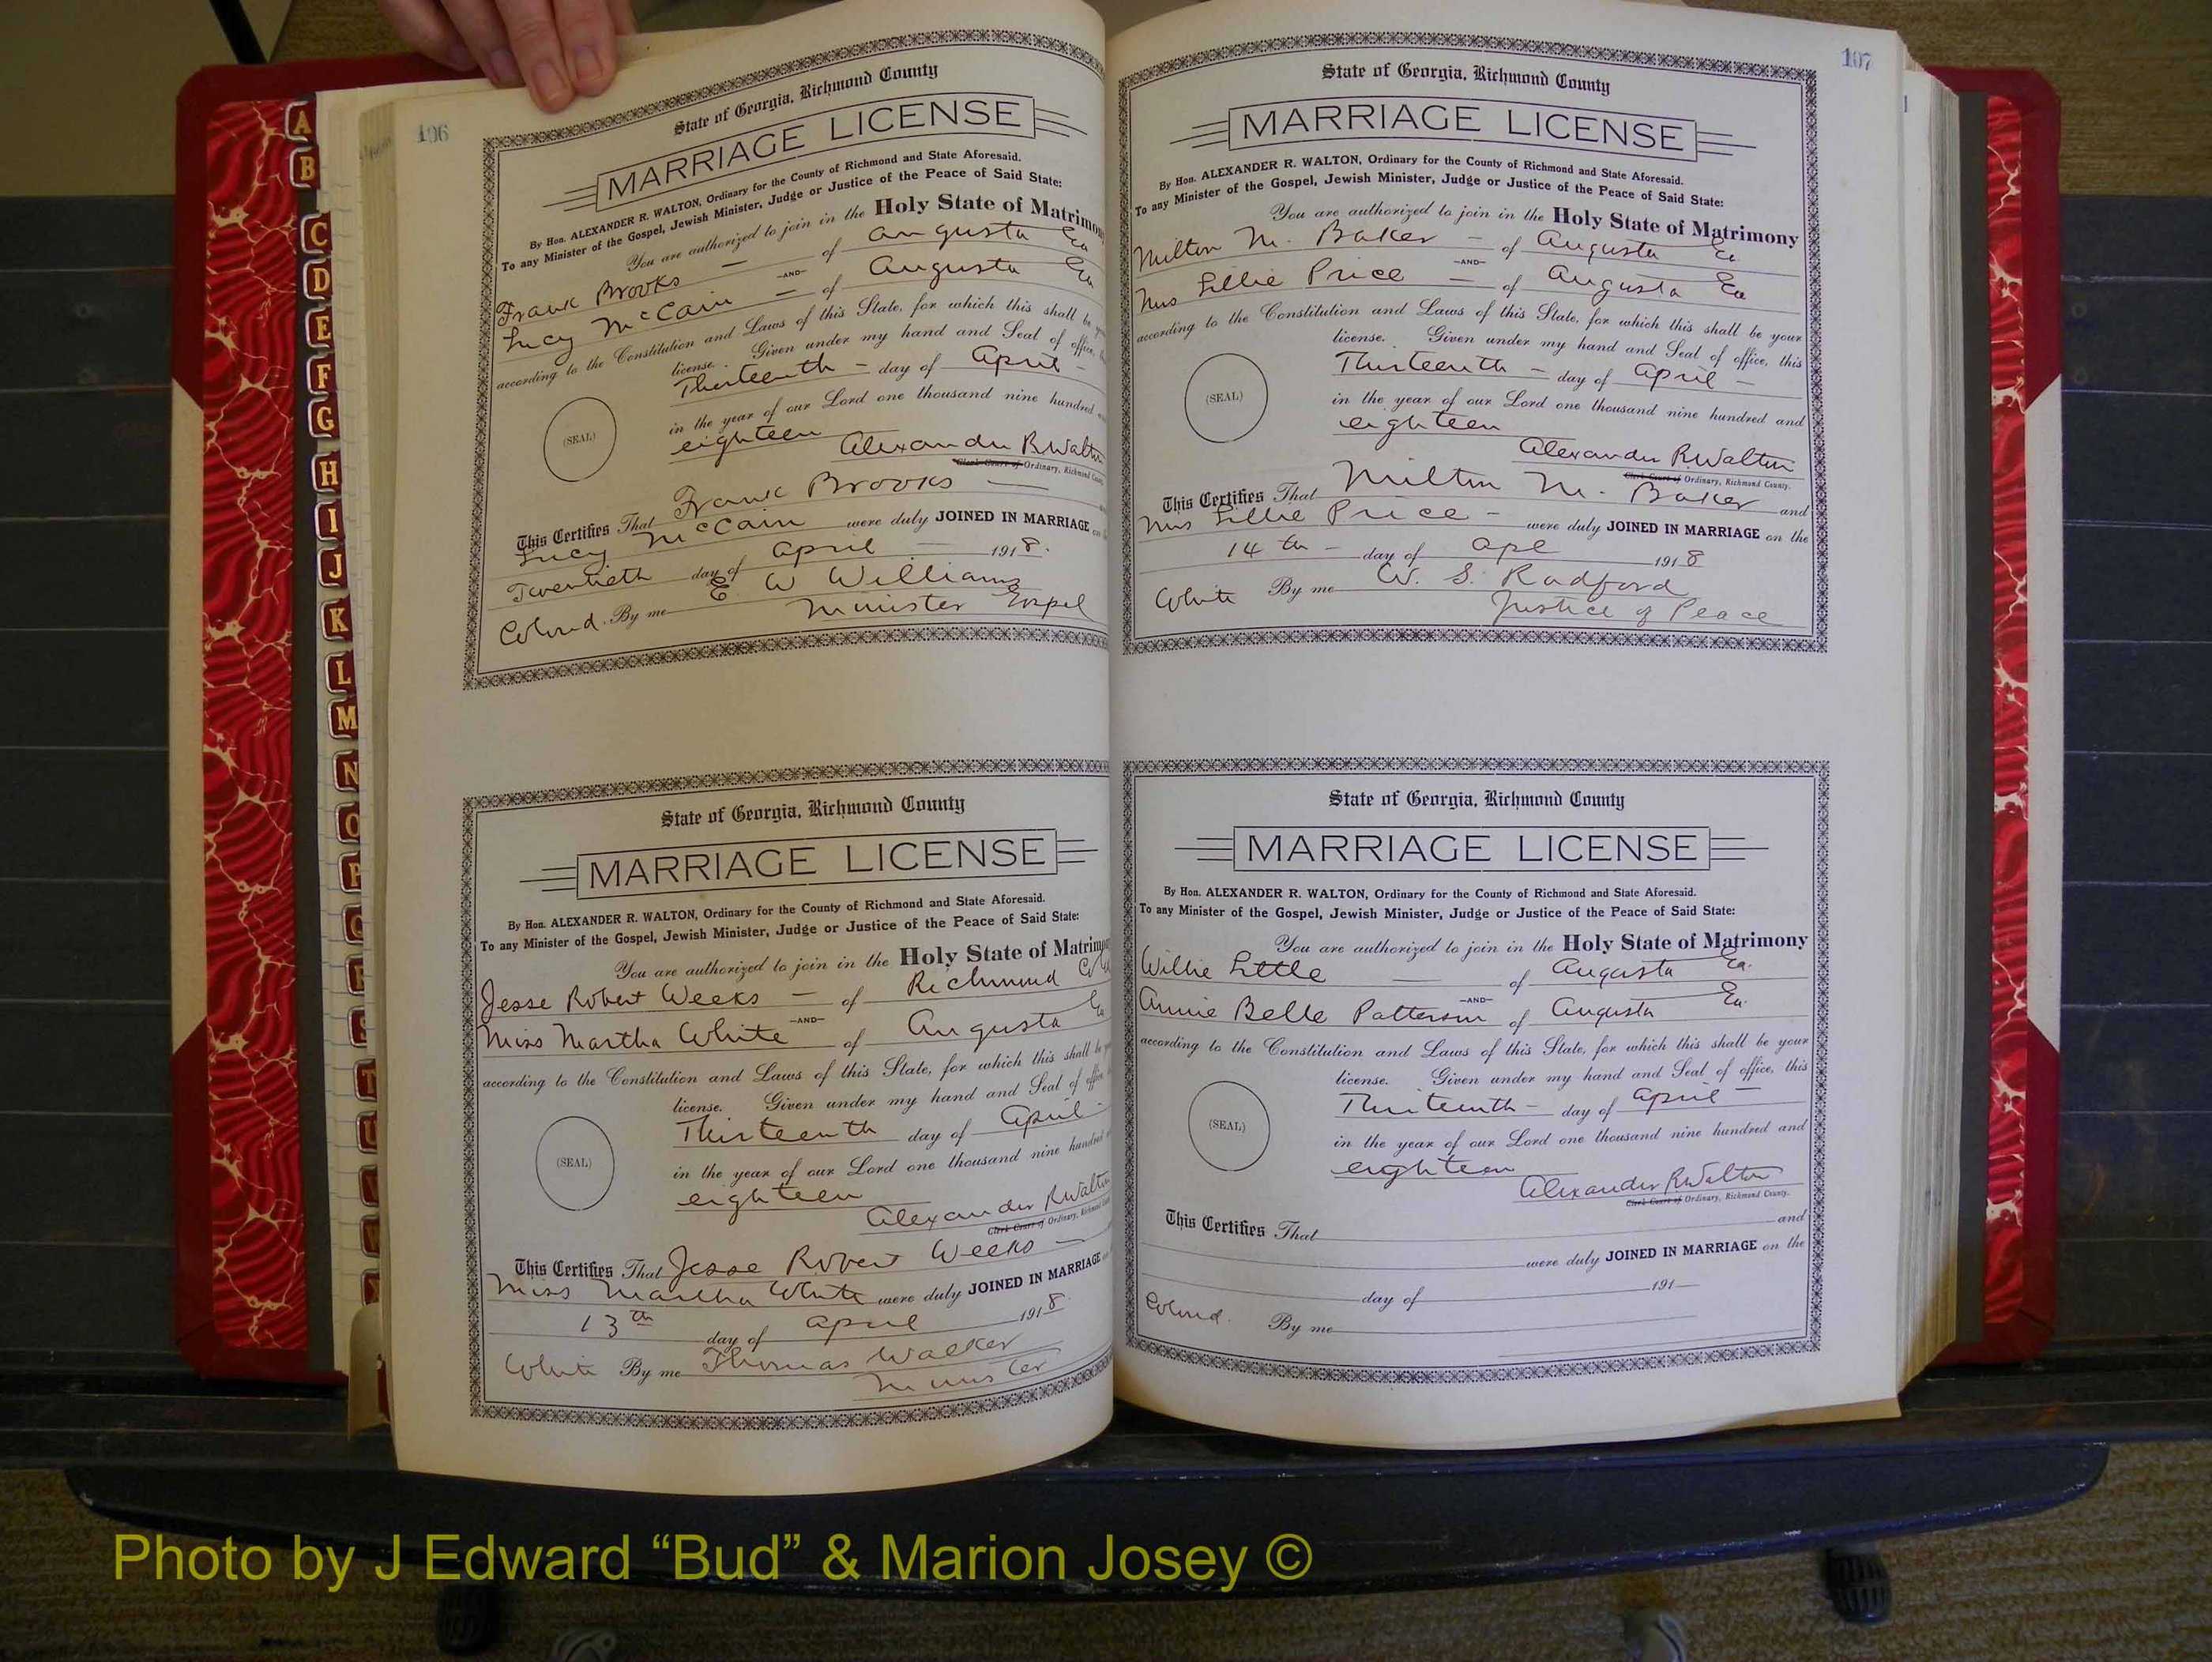 196
State of Georgia, Richmond County
MARRIAGE LICENSE
By Hon. ALEXANDER R. WALTON, Ordinary for the County of Richmond and State Aforesaid.
To any Minister of the Gospel, Jewish Minister, Judge or Justice of the Peace of Said State:
You are authorized to join in the Holy State of Matrimony
Frank Brooks — of Augusta Ga
—AND—
Lucy McCain — of Augusta Ga
according to the Constitution and Laws of this State, for which this shall be
license. Given under my hand and Seal of office,
Thirteenth — day of April —
(SEAL)
in the year of our Lord one thousand nine hundred
eighteen
Alexander R Walton
Clerk Court of Ordinary, Richmond County
This Certifies That Frank Brooks —
Lucy McCain were duly JOINED IN MARRIAGE on
Twentieth day of April — 1918.
Colored. By me E. W Williams
Minister Gospel
State of Georgia, Richmond County
MARRIAGE LICENSE
By Hon. ALEXANDER R. WALTON, Ordinary for the County of Richmond and State Aforesaid.
To any Minister of the Gospel, Jewish Minister, Judge or Justice of the Peace of Said State:
You are authorized to join in the Holy State of Matrimony
Jesse Robert Weeks — of Richmond Co
—AND—
Miss Martha White of Augusta Ga
according to the Constitution and Laws of this State, for which this shall be
license. Given under my hand and Seal of office,
Thirteenth day of April —
(SEAL)
in the year of our Lord one thousand nine hundred
eighteen
Alexander R Walton
Clerk Court of Ordinary, Richmond County
This Certifies That Jesse Robert Weeks —
Miss Martha White were duly JOINED IN MARRIAGE
13th day of April 1918.
White By me Thomas Walker
Minister
107
State of Georgia, Richmond County
MARRIAGE LICENSE
By Hon. ALEXANDER R. WALTON, Ordinary for the County of Richmond and State Aforesaid.
To any Minister of the Gospel, Jewish Minister, Judge or Justice of the Peace of Said State:
You are authorized to join in the Holy State of Matrimony
Milton M. Baker — of Augusta Ga.
—AND—
Mrs Lillie Price — of Augusta Ga
according to the Constitution and Laws of this State, for which this shall be your
license. Given under my hand and Seal of office, this
Thirteenth — day of April —
(SEAL)
in the year of our Lord one thousand nine hundred and
eighteen
Alexander R. Walton
Clerk Court of Ordinary, Richmond County.
This Certifies That Milton M. Baker and
Mrs Lillie Price — were duly JOINED IN MARRIAGE on the
14th — day of Apl 1918
White By me W. S. Radford
Justice of Peace
State of Georgia, Richmond County
MARRIAGE LICENSE
By Hon. ALEXANDER R. WALTON, Ordinary for the County of Richmond and State Aforesaid.
To any Minister of the Gospel, Jewish Minister, Judge or Justice of the Peace of Said State:
You are authorized to join in the Holy State of Matrimony
Willie Little — of Augusta Ga.
—AND—
Annie Belle Patterson of Augusta Ga.
according to the Constitution and Laws of this State, for which this shall be your
license. Given under my hand and Seal of office, this
Thirteenth — day of April —
(SEAL)
in the year of our Lord one thousand nine hundred and
eighteen
Alexander R Walton
Clerk Court of Ordinary, Richmond County.
This Certifies That and
were duly JOINED IN MARRIAGE on the
day of 191
Colored. By me
A
B
C
D
E
F
G
H
I
J
K
L
M
N
O
P
Q
R
S
T
U
V
W
Photo by J Edward “Bud” & Marion Josey ©